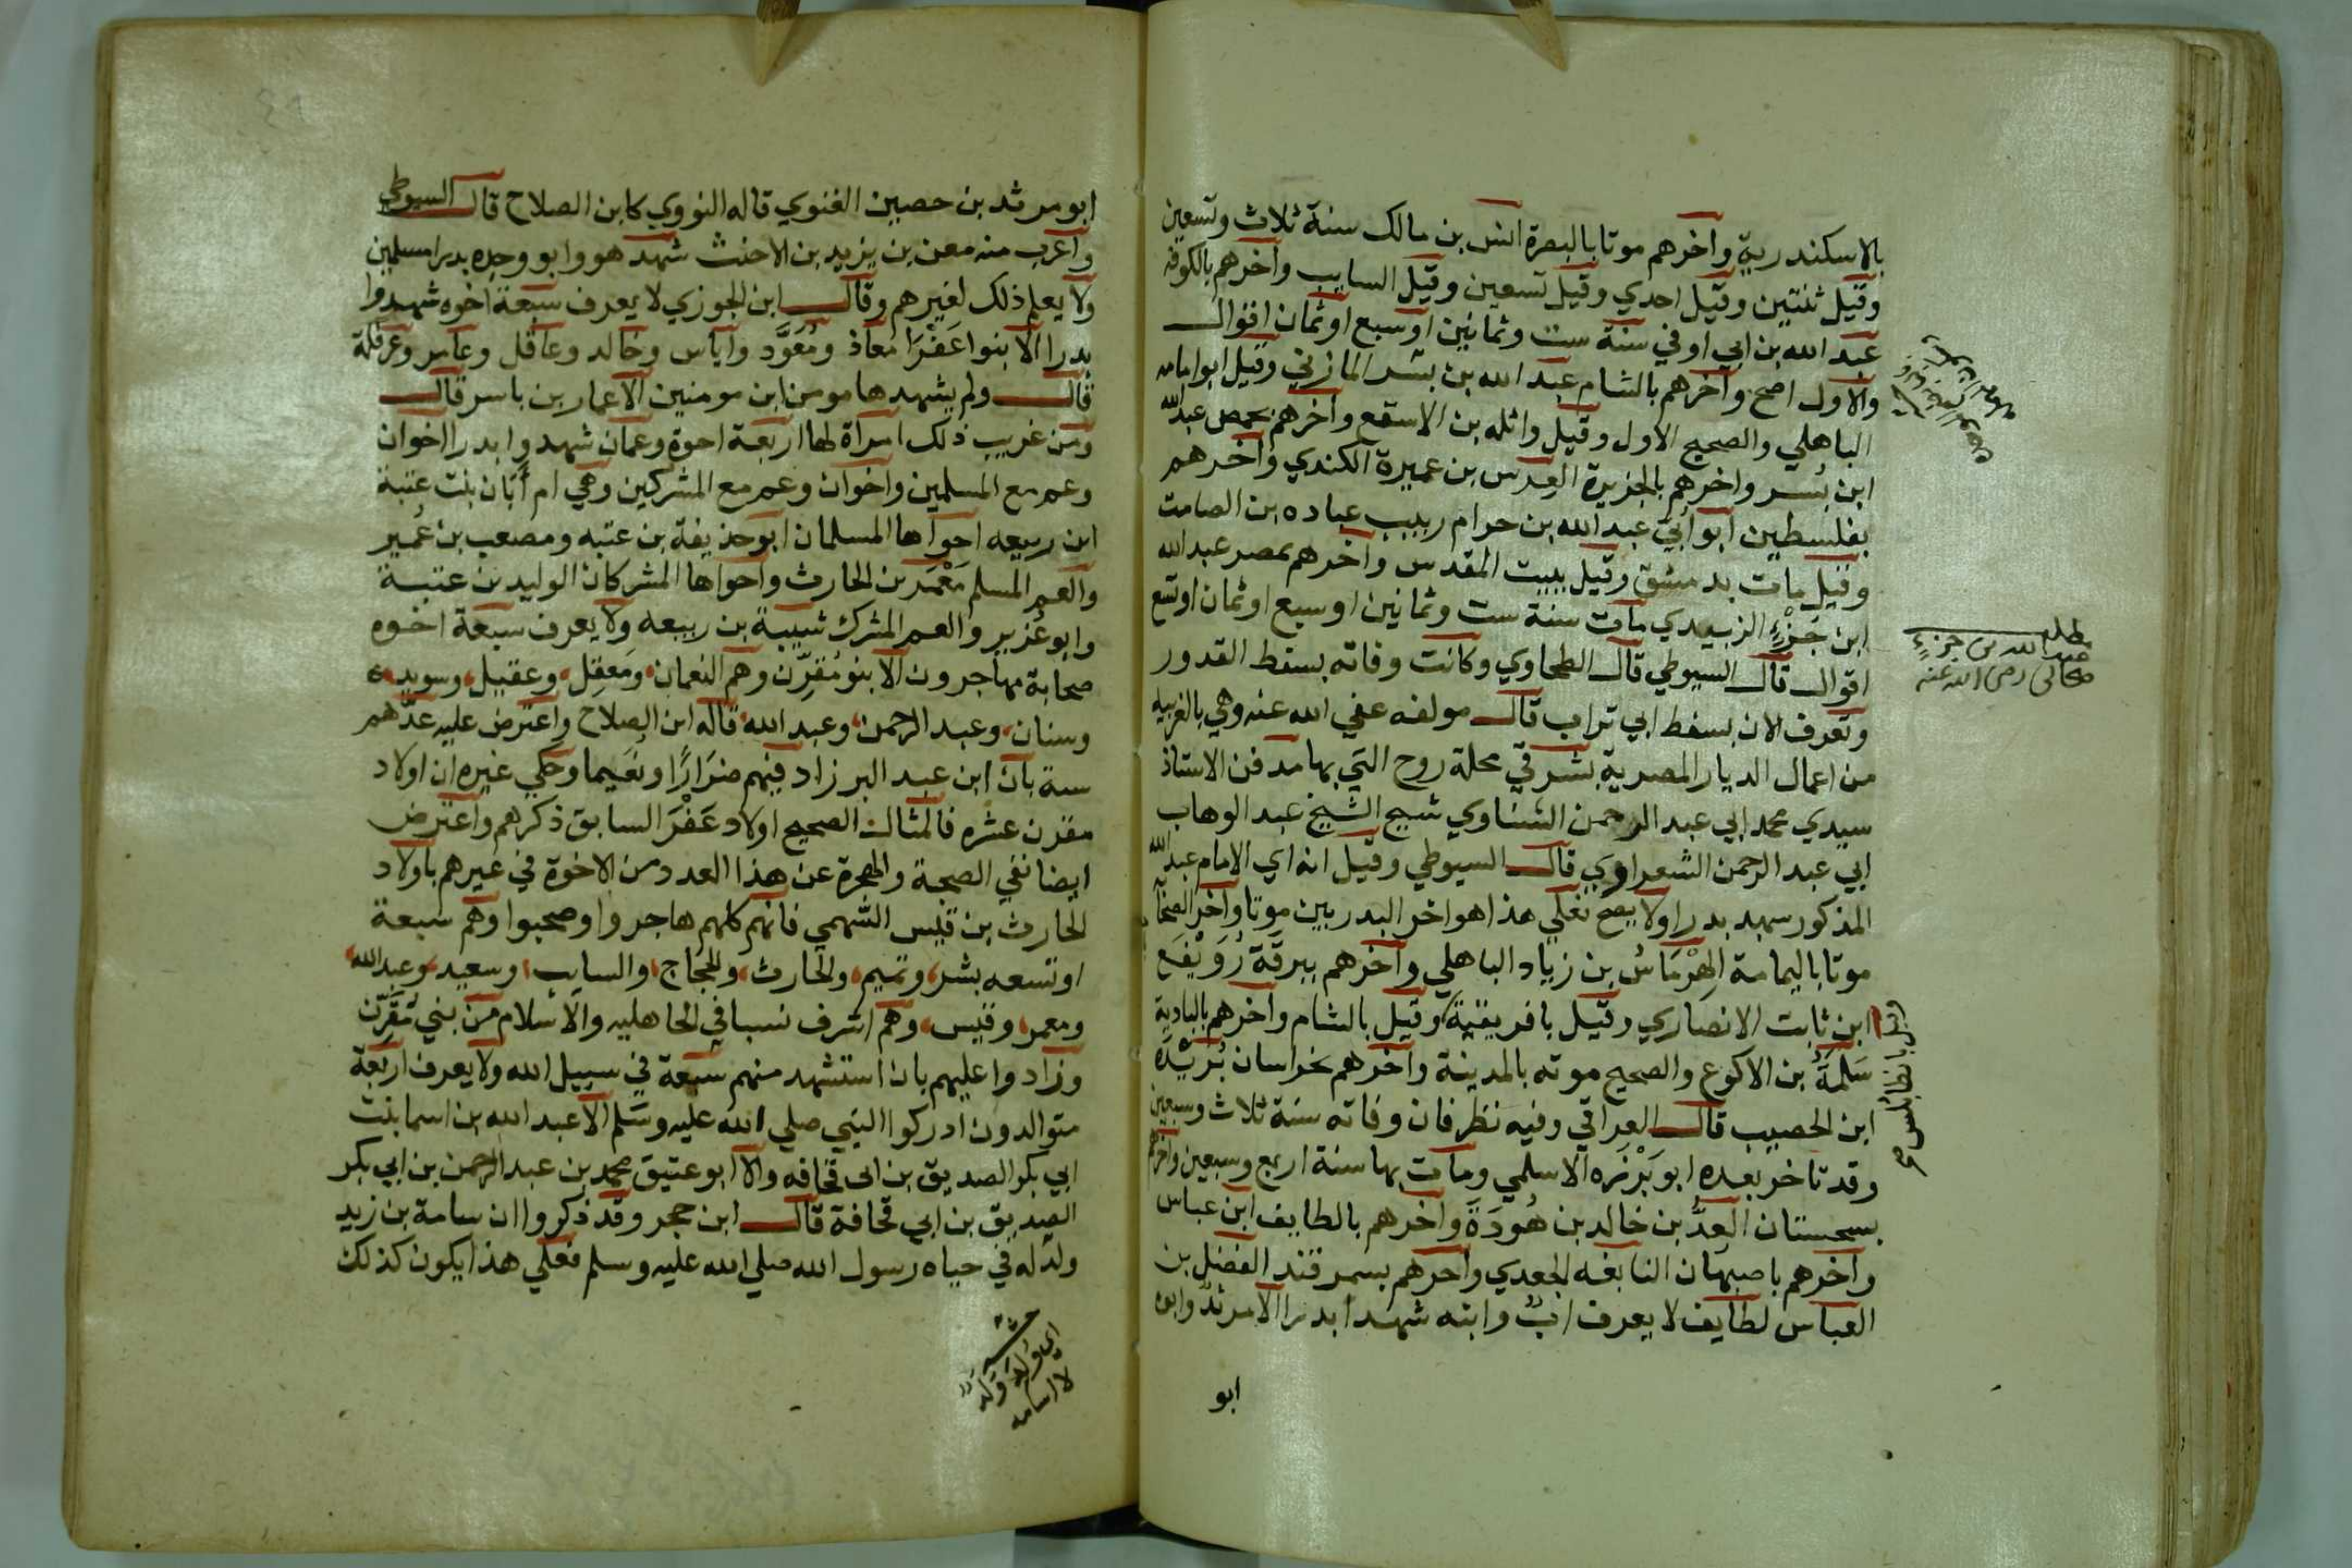 بالاسكندرية وآخرهم موتا بالبصرة انس بن مالك سنة ثلاث وتسعين
وقيل ثنتين وقيل احدي وقيل تسعين وقيل السايب وآخرهم بالكوفة
عبد الله بن ابي اوفي سنة ست وثمانين او سبع او ثمان اقوال
والاول اصح وآخرهم بالشام عبد الله بن بسر المازني وقيل ابو امامه
الباهلي والصحيح الاول وقيل واثله بن الاسقع وآخرهم بحمص عبد الله
ابن بسر واخرهم بالجزيرة العرس بن عميرة الكندي وآخرهم
بفلسطين ابو ابي عبد الله بن حرام ربيب عباده بن الصامت
وقيل مات بدمشق وقيل ببيت المقدس وآخرهم بمصر عبد الله
ابن جزء الزبيدي مات سنة ست وثمانين او سبع او ثمان او تسع
اقوال قال السيوطي قال الطحاوي وكانت وفاته بسفط القدور
وتعرف الان بسفط ابي تراب قال مولفه عفي الله عنه وهي بالغربيه
من اعمال الديار المصرية بشرقي محلة روح التي بها مدفن الاستاذ
سيدي محمد ابي عبد الرحمن الشناوي شيخ الشيخ عبد الوهاب
ابي عبد الرحمن الشعراوي قال السيوطي وقيل انه اي الامام عبد الله
المذكور شهد بدرا ولا يصح فعلي هذا هو اخر البدريين موتا وآخر الصحا
موتا باليمامة الهرماس بن زياد الباهلي وآخرهم ببرقة رويفع
ابن ثابت الانصاري وقيل بافريقية وقيل بالشام وآخرهم بالبادية
سلمة بن الاكوع والصحيح موته بالمدينة وآخرهم بخراسان بريدة
ابن الحصيب قال العراقي وفيه نظر فان وفاته سنة ثلاث وسبعين
وقد تاخر بعده ابو برزه الاسلمي ومات بها سنة اربع وسبعين وآخرهم
بسجستان العد بن خالد بن هودة وآخرهم بالطايف ابن عباس
وآخرهم باصبهان النابغه الجعدي وآخرهم بسمرقند الفضل بن
العباس لطايف لا يعرف اب وابنه شهدا بدرا الا مرثد وابوه
ابو
مطلب
عبد الله بن جزء
صحابي رضي الله عنه
ابو مرثد بن حصين الغنوي قاله النووي كابن الصلاح قال السيوطي
واغرب منه معن بن يزيد بن الاخنث شهد هو وابوه وجده بدرا مسلمين
ولا يعلم ذلك لغيرهم وقال ابن الجوزي لا يعرف سبعة اخوه شهدوا
بدرا الا بنوا عفرا معاذ ومعود واياس وخالد وعاقل وعامر وعرفلة
قال ولم يشهدها مومن ابن مومنين الا عمار بن ياسر قال
ومن غريب ذلك امراة لها اربعة اخوة وعمان شهدوا بدرا اخوان
وعم مع المسلمين واخوان وعم مع المشركين وهي ام أبان بنت عتبة
ابن ربيعه اخواها المسلمان ابو حذيفة بن عتبه ومصعب بن عمير
والعم المسلم معمر بن الحارث واخواها المشركان الوليد بن عتبة
وابو عزير والعم المشرك شيبة بن ربيعه ولا يعرف سبعة اخوه
صحابة مهاجرون الا بنو مقرن وهم النعمان ومعقل وعقيل وسويد
وسنان وعبد الرحمن وعبد الله قاله ابن الصلاح واعترض عليه عدهم
ستة بان ابن عبد البر زاد فيهم ضرارا ونعيما وحكي غيره ان اولاد
مقرن عشره فالمثال الصحيح اولاد عفرا السابق ذكرهم واعترض
ايضا نفي الصحبة والهجرة عن هذا العدد من الاخوة في غيرهم باولاد
الحارث بن قيس السهمي فانهم كلهم هاجروا وصحبوا وهم سبعة
او تسعه بشر وتميم والحارث والحجاج والسايب وسعيد وعبد الله
ومعمر وقيس وهم اشرف نسبا في الجاهليه والاسلام من بني مقرن
وزادوا عليهم بان استشهد منهم سبعة في سبيل الله ولا يعرف اربعة
متوالدون ادركوا النبي صلي الله عليه وسلم الا عبد الله بن اسما بنت
ابي بكر الصديق بن ابي قحافه والا ابو عتيق محمد بن عبد الرحمن بن ابي بكر
الصديق بن ابي قحافة قال ابن حجر وقد ذكروا ان سامة بن زيد
ولد له في حياه رسول الله صلي الله عليه وسلم فعلي هذا يكون كذلك
اي ولد ولد
لا اسامه